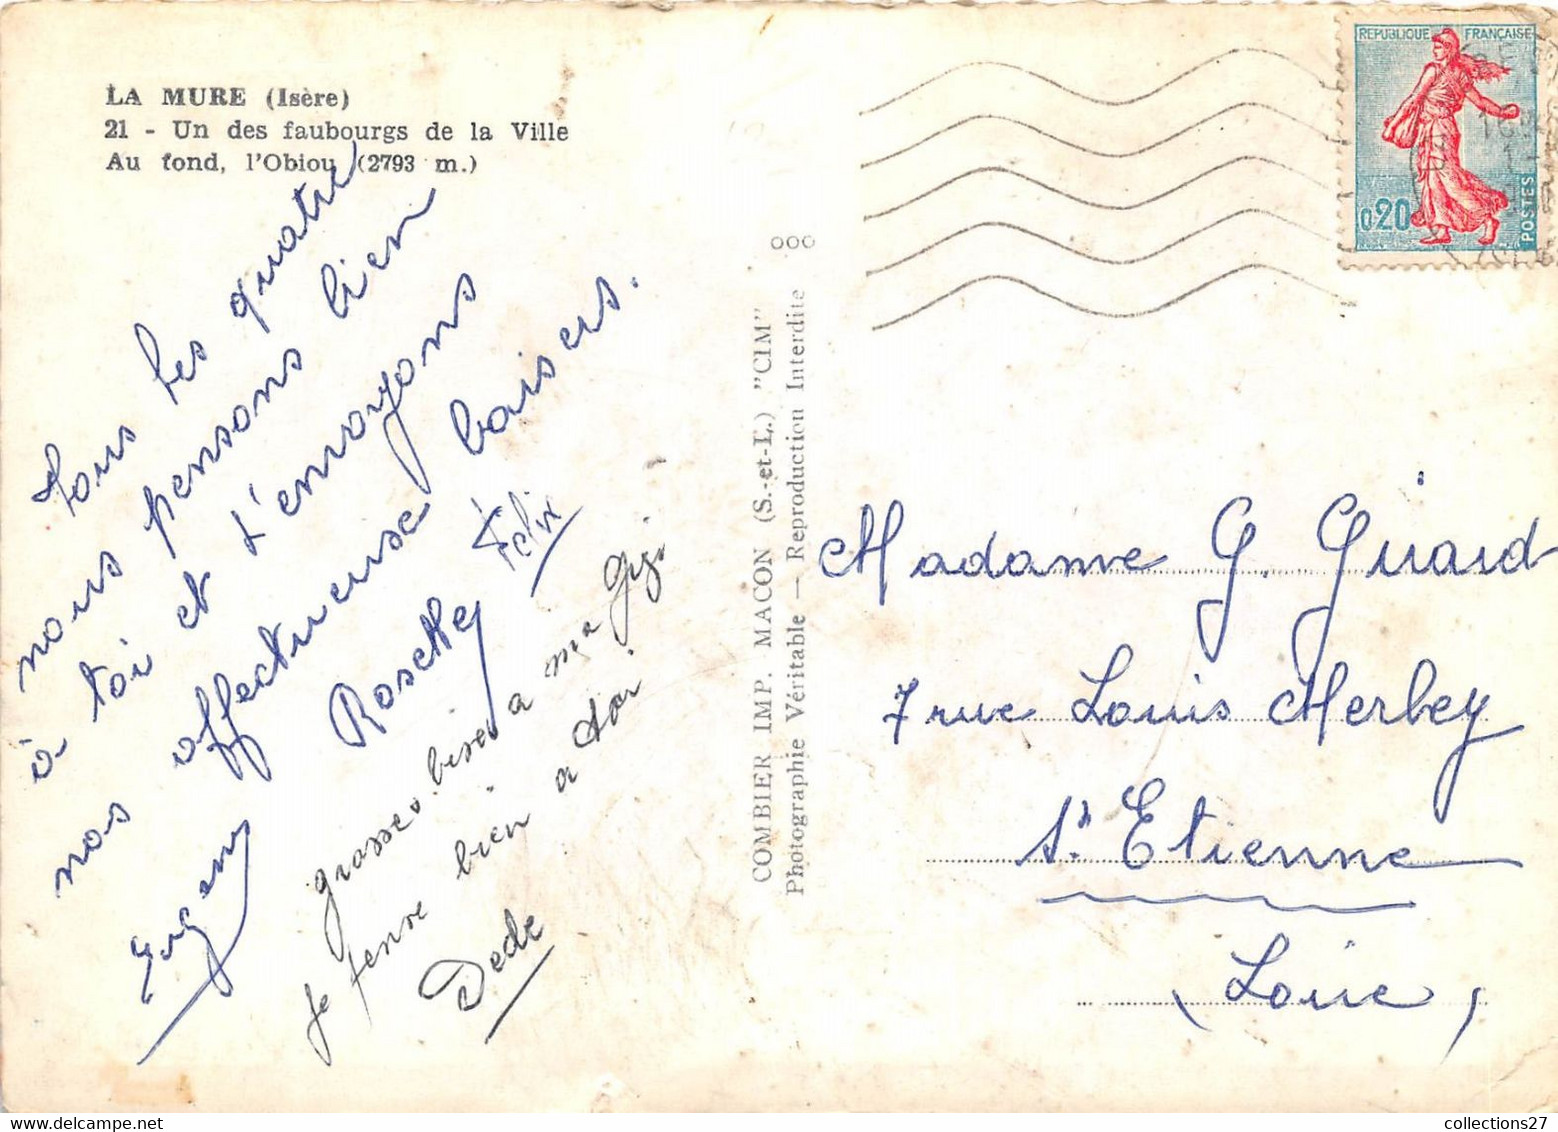 LA MURE (Isère)
21 - Un des faubourgs de la Ville
Au fond, l'Obiou (2793 m.)
Tous les quatre
nous pensons bien
à toi et t'envoyons
nos affectueuse baisers.
Eugeny
Rosette
Félix
grosses bises a ma Gigi
je pense bien a toi
Dede
COMBIER IMP. MACON (S.-et-L.) "CIM"
Photographie Véritable — Reproduction Interdite
ooo
REPUBLIQUE FRANÇAISE
0,20
POSTES
Madame G. Girard
7 rue Louis Merley
St. Etienne
(Loire)
collections27